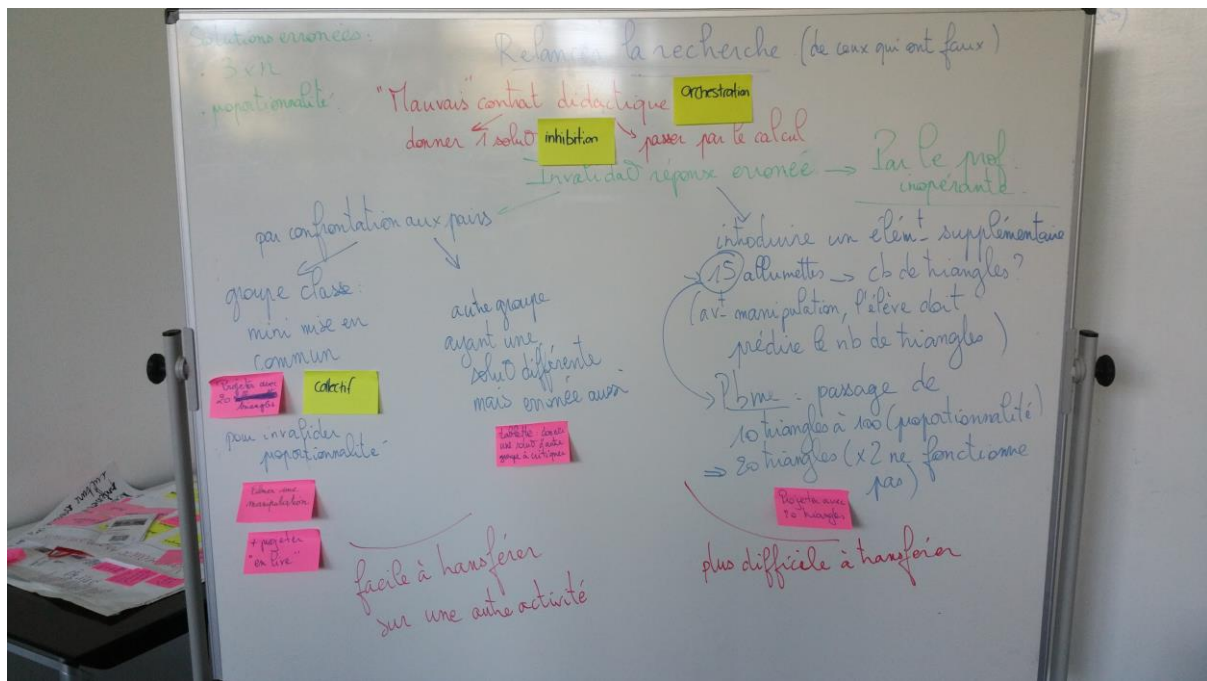 Solutions erronées :
. 3 x n
. proportionnalité
Relancer la recherche (de ceux qui ont faux)
"Mauvais" contrat didactique
Orchestration
donner 1 solut°
inhibition
passer par le calcul
Invalidat° réponse erronée → Par le prof.
inopérante
par confrontation aux pairs
groupe classe :
mini mise en
commun
Projeter avec
20
triangles
Collectif
pour invalider
proportionnalité
manipulation
+ projeter
"en live"
autre groupe
ayant une
solut° différente
mais erronée aussi
tablette : donner
une solut° d'autre
groupe à critiquer
facile à transférer
sur une autre activité
introduire un élémt supplémentaire
15 allumettes → cb de triangles ?
(avt manipulation, l'élève doit
prédire le nb de triangles)
Pbme : passage de
10 triangles à 100 (proportionnalité)
⇒ 20 triangles (x2 ne fonctionne
pas)
Projeter avec
20 triangles
plus difficile à transférer